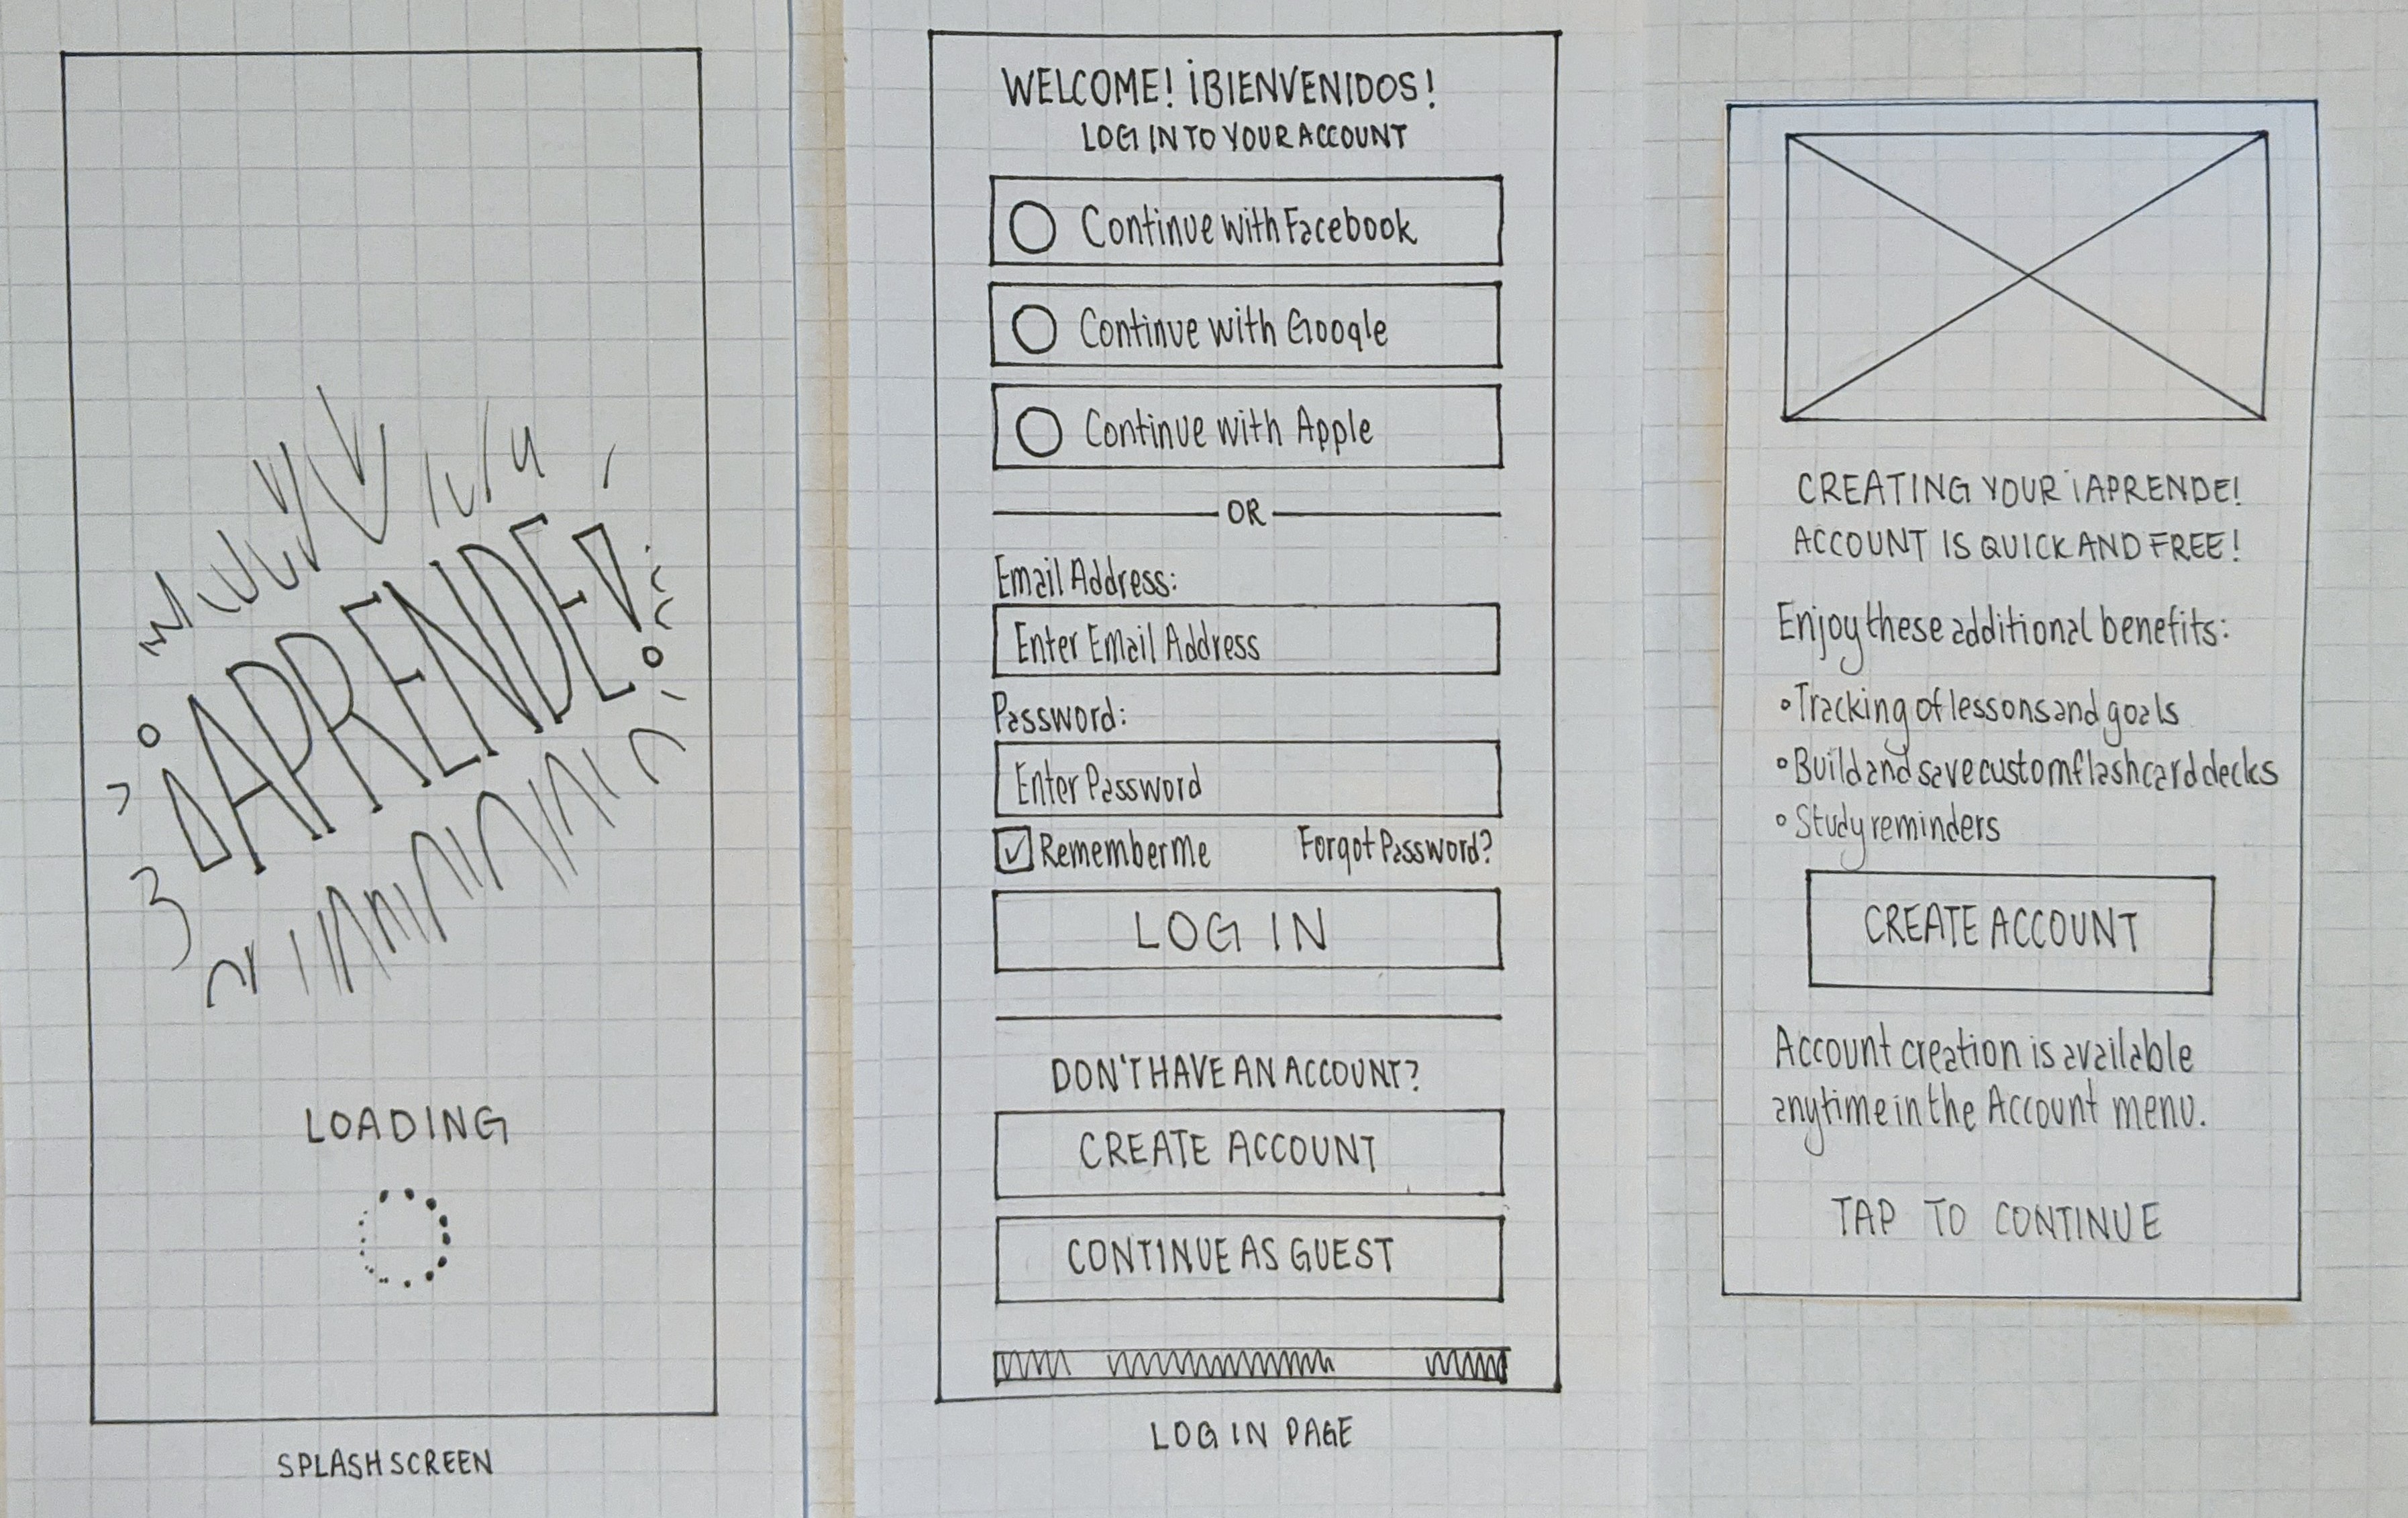 ¡APRENDE!
LOADING
SPLASH SCREEN
WELCOME! ¡BIENVENIDOS!
LOG IN TO YOUR ACCOUNT
Continue with Facebook
Continue with Google
Continue with Apple
OR
Email Address:
Enter Email Address
Password:
Enter Password
Remember Me Forgot Password?
LOG IN
DON'T HAVE AN ACCOUNT?
CREATE ACCOUNT
CONTINUE AS GUEST
LOG IN PAGE
CREATING YOUR ¡APRENDE!
ACCOUNT IS QUICK AND FREE!
Enjoy these additional benefits:
• Tracking of lessons and goals
• Build and save custom flashcard decks
• Study reminders
CREATE ACCOUNT
Account creation is available
anytime in the Account menu.
TAP TO CONTINUE